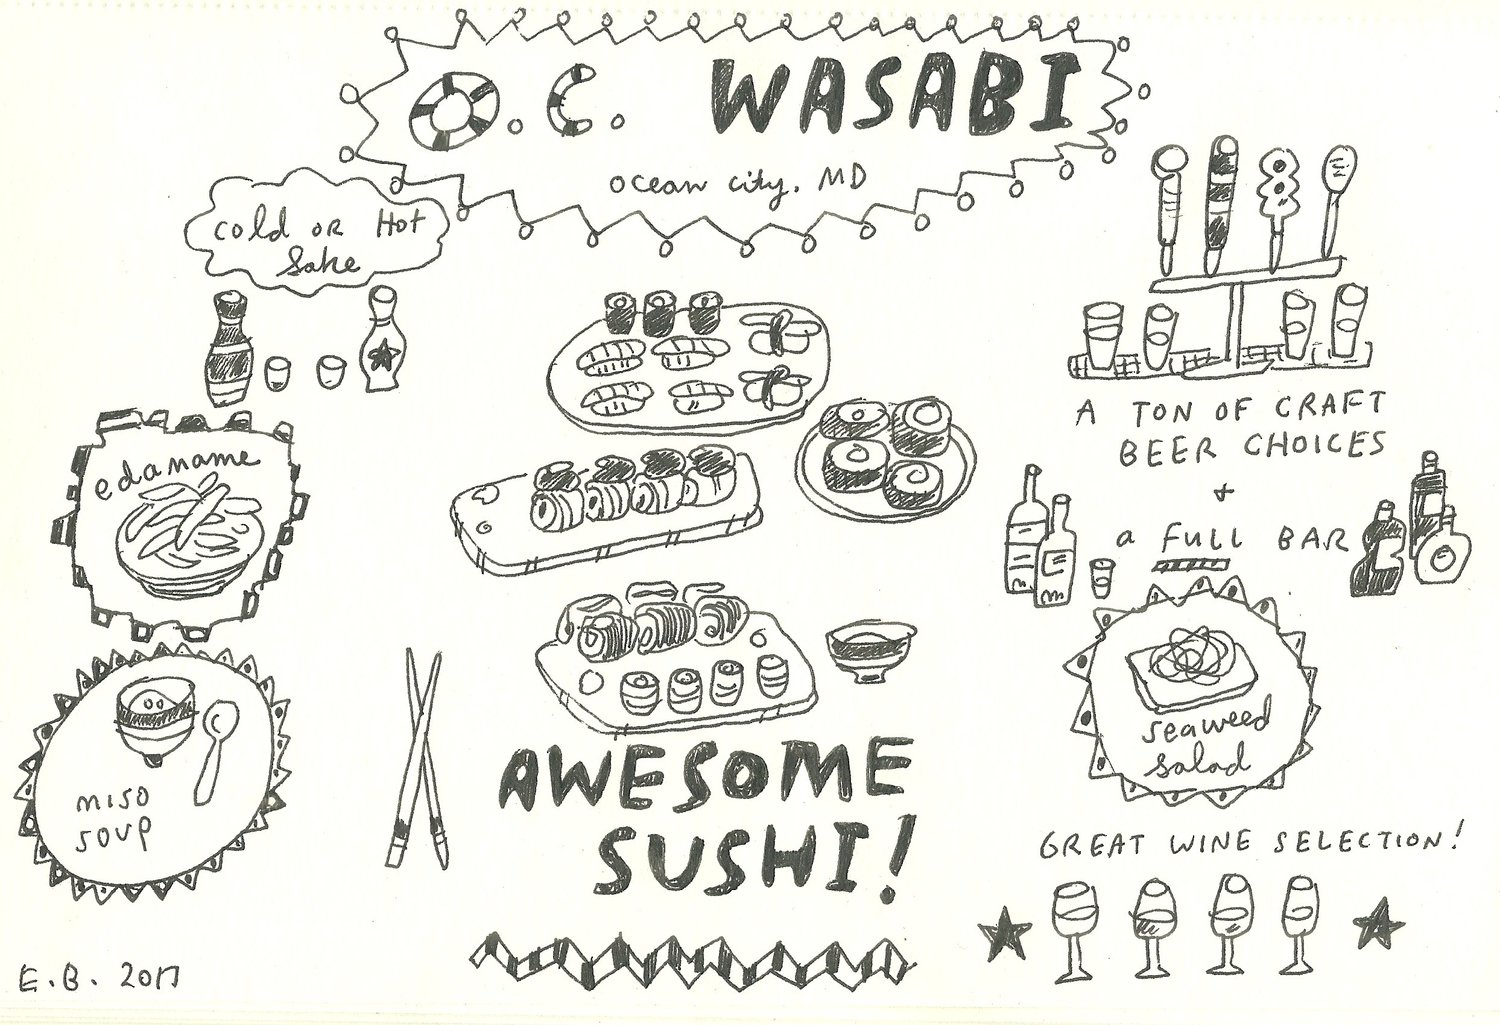 O.C. WASABI
ocean city, MD
cold OR Hot
Sake
edamame
miso
soup
AWESOME
SUSHI!
A TON OF CRAFT
BEER CHOICES
+
a FULL BAR
seaweed
salad
GREAT WINE SELECTION!
E.B. 2017